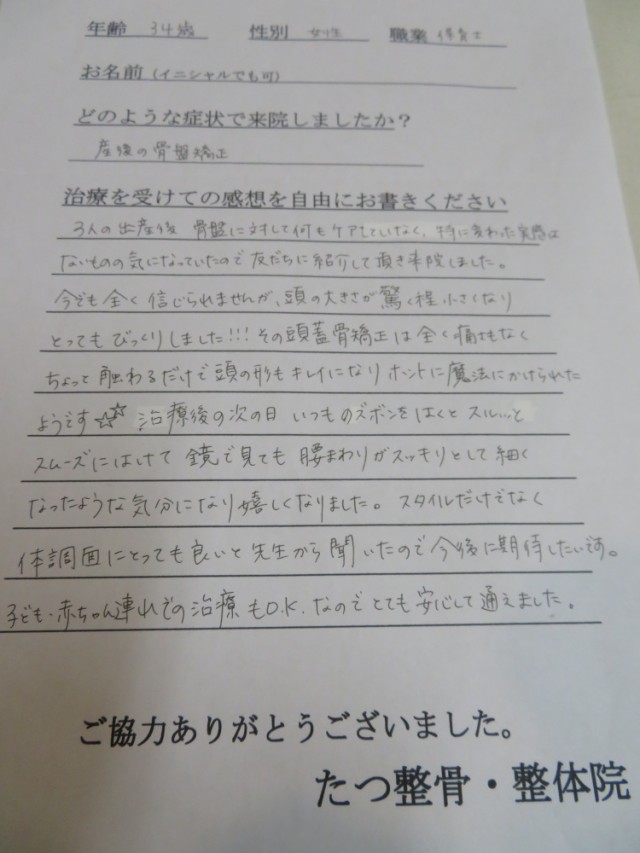 年齢 34歳 性別 女性 職業 保育士
お名前（イニシャルでも可）
どのような症状で来院しましたか？
産後の骨盤矯正
治療を受けての感想を自由にお書きください
3人の出産後 骨盤に対して何もケアしていなく、特に変わった実感は
ないものの気になっていたので友だちに紹介して頂き来院しました。
今でも全く信じられませんが、頭の大きさが驚く程小さくなり
とってもびっくりしました!!!その頭蓋骨矯正は全く痛さもなく
ちょっと触わるだけで頭の形もキレイになりホントに魔法にかけられた
ようです☆☆ 治療後の次の日 いつものズボンをはくとスルッ…と
スムーズにはけて 鏡で見ても 腰まわりがスッキリとして細く
なったような気分になり嬉しくなりました。スタイルだけでなく
体調面にとっても良いと先生から聞いたので今後に期待したいです。
子ども・赤ちゃん連れでの治療もO.K.なのでとても安心して通えました。
ご協力ありがとうございました。
たつ整骨・整体院